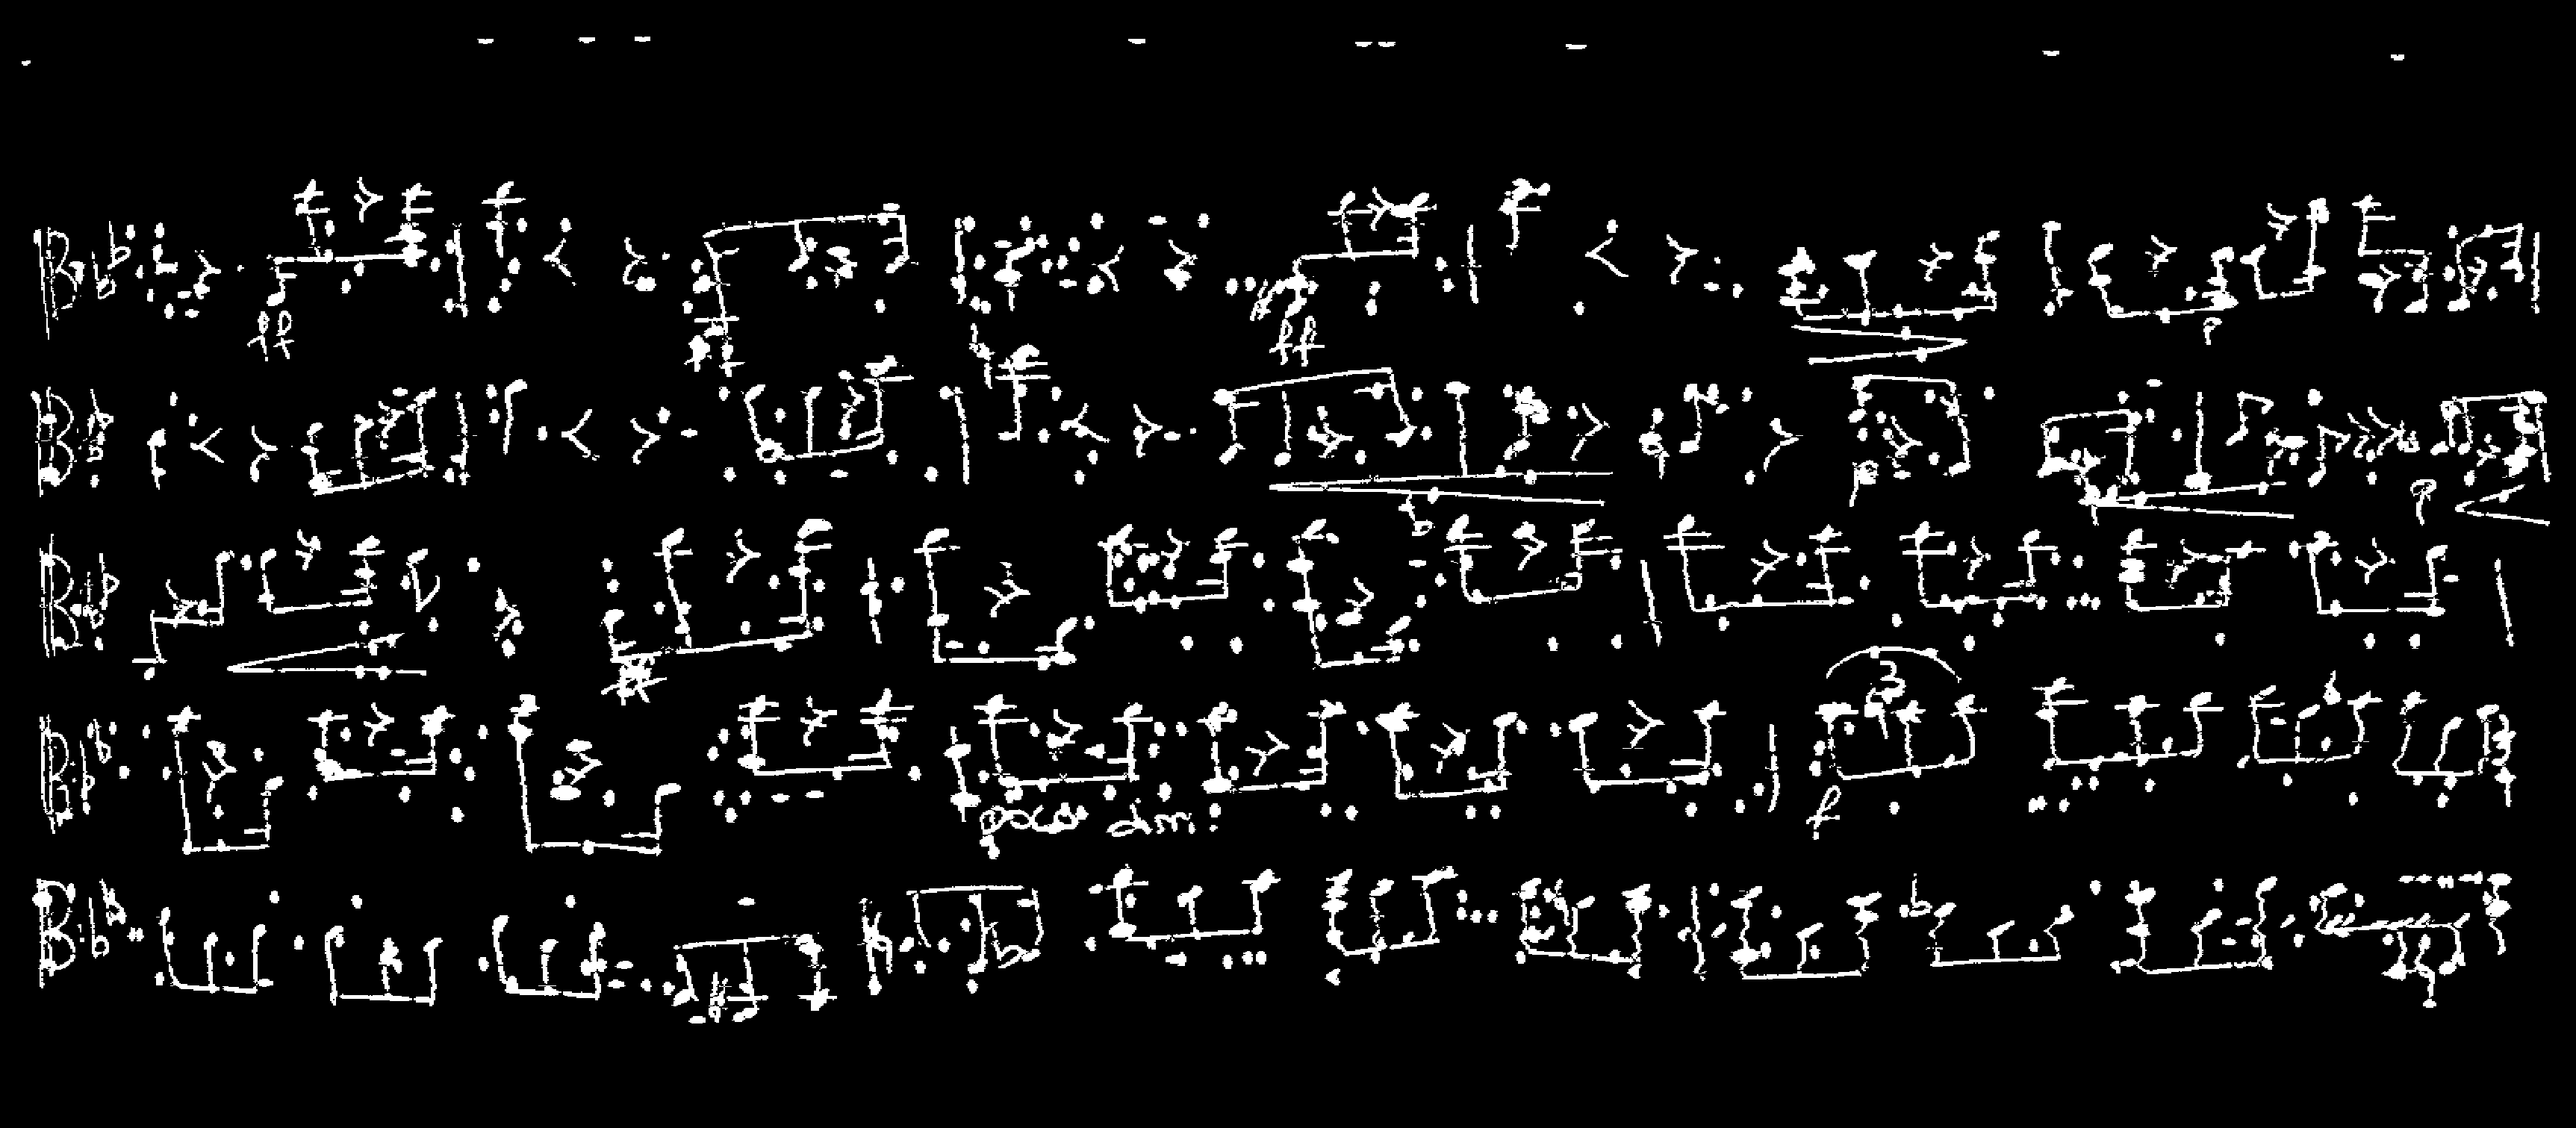 ff ff
p
p p
3
poco dim: f